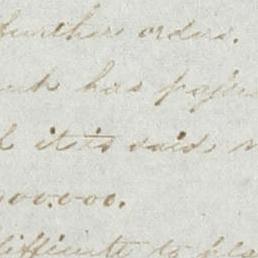 further orders.
has
it is said
00.000.
difficult to